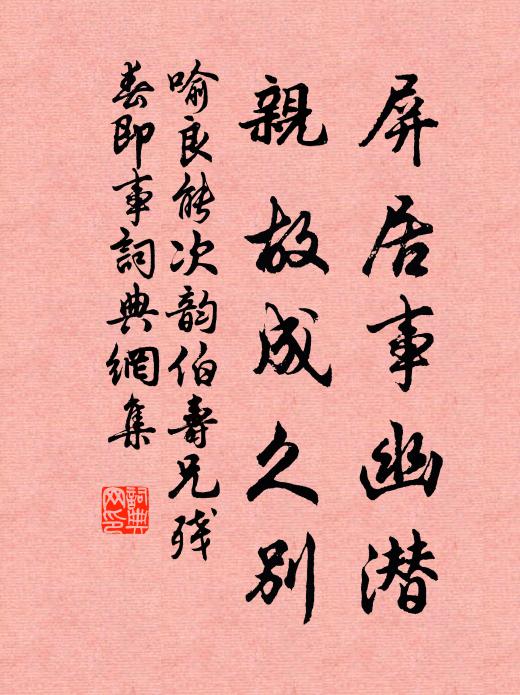 屏居事幽潜
親故成久别
喻良能次韵伯壽兄残
春即事詞典網集
詞典網印